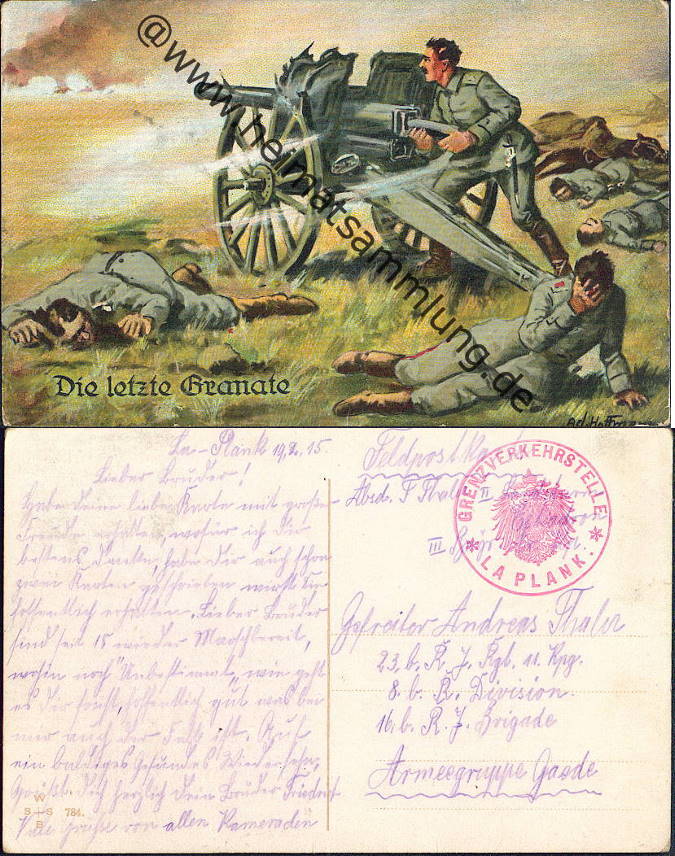 @www.heimatsammlung.de
Die letzte Granate
La-Plank 19.2.15
Lieber Bruder!
Habe deine liebe Karte mit großer
Freude erhalten, wofür ich dir
bestens danke, habe dir auch schon
zwei Karten geschrieben wirst sie
hoffentlich erhalten. Lieber Bruder
sind seit 15 wieder Marschbereit,
wohin noch Unbestimmt, wie geht
es dir sonst, hoffentlich gut was bei
mir auch der Fall ist. Auf
ein baldiges gesundes Wiedersehn,
Grüßt dich herzlich dein Bruder Friedrich
Viele Grüße von allen Kameraden
W
S+S 784.
B
Feldpostkarte
GRENZVERKEHRSTELLE
* LA PLANK. *
Gefreiter Andreas Thaler
23. b. R. J. Rgt. 11. Kpg.
8. b. R. Division
16. b. R. J. Brigade
Armeegruppe Gaede